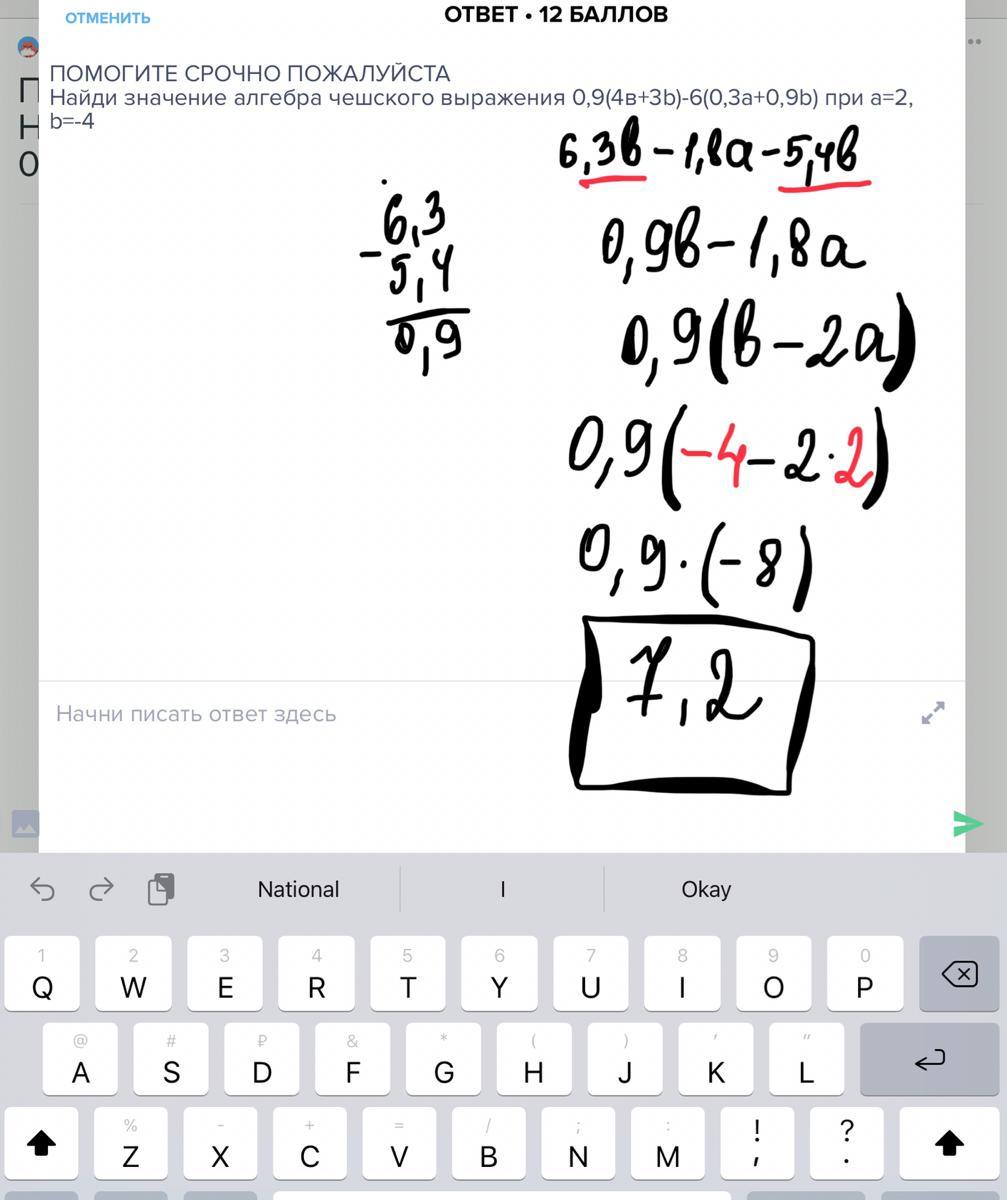 ОТМЕНИТЬ
ОТВЕТ • 12 БАЛЛОВ
ПОМОГИТЕ СРОЧНО ПОЖАЛУЙСТА
Найди значение алгебра чешского выражения 0,9(4в+3b)-6(0,3a+0,9b) при a=2,
b=-4
6,3в-1,8а-5,4в
6,3
-
5,4
0,9
0,9в-1,8а
0,9(в-2а)
0,9(-4-2·2)
0,9·(-8)
7,2
Начни писать ответ здесь
National I Okay
1 2 3 4 5 6 7 8 9 0
Q W E R T Y U I O P
@ # ₽ & * ( ) ' "
A S D F G H J K L
% - + = / ; : ! ?
Z X C V B N M , .
П
Н
0